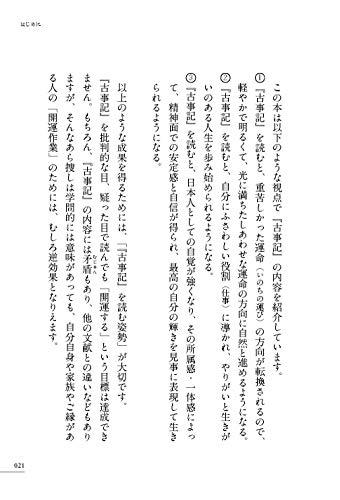 はじめに
この本は以下のような視点で『古事記』の内容を紹介しています。
①『古事記』を読むと、重苦しかった運命（いのちの運び）の方向が転換されるので、
軽やかで明るくて、光に満ちたしあわせな運命の方向に自然と進めるようになる。
②『古事記』を読むと、自分にふさわしい役割（仕事）に導かれ、やりがいと生きが
いのある人生を歩み始められるようになる。
③『古事記』を読むと、日本人としての自覚が強くなり、その所属感・一体感によっ
て、精神面での安定感と自信が得られ、最高の自分の輝きを見事に表現して生き
られるようになる。
以上のような成果を得るためには、「『古事記』を読む姿勢」が大切です。
『古事記』を批判的な目、疑った目で読んでも「開運する」という目標は達成でき
ません。もちろん、『古事記』の内容には矛盾もあり、他の文献との違いなどもあり
むじゅん
ますが、そんなあら捜しは学問的には意味があっても、自分自身や家族やご縁があ
る人の「開運作業」のためには、むしろ逆効果となりえます。
021